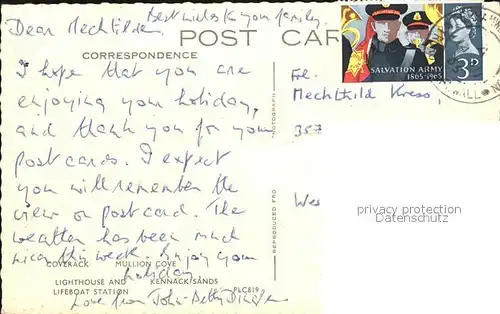 Best wishes to your family.
Dear Mechthild,
POST CAR
CORRESPONDENCE
I hope that you are
enjoying your holiday,
and thank you for your
postcards. I expect
you will remember the
view on postcard. The
weather has been much
nicer this week. Enjoy your
holiday
COVERACK MULLION COVE
LIGHTHOUSE AND KENNACK SANDS
LIFEBOAT STATION PLC819
Love from John - Betty
REPRODUCED FRO
PHOTOGRAPH
SALVATION ARMY
1865-1965
3D
Frl.
Mechthild Kress,
357
Wes
privacy protection
Datenschutz